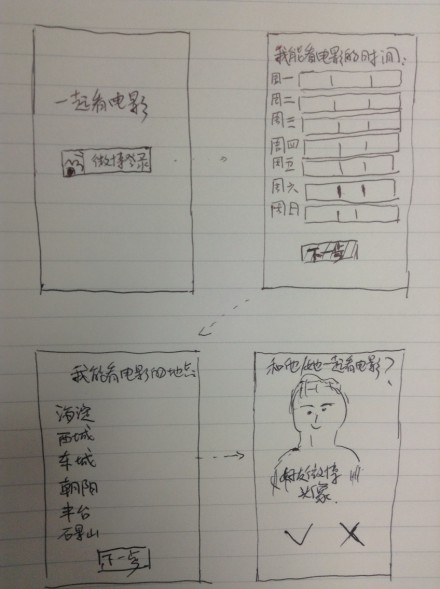 一起看电影
微博登录
我能看电影的时间:
周一
周二
周三
周四
周五
周六
周日
下一步
我能看电影的地点
海淀
西城
东城
朝阳
丰台
石景山
下一步
和他/她一起看电影?
微博
头像